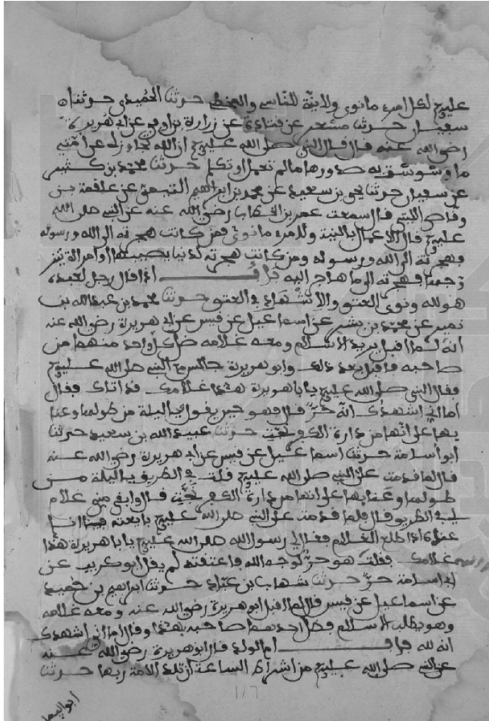 عليه لكل امرئ ما نوى ولا نية للناسي والمخطئ حدثنا الحميدي حدثنا
سفيان حدثنا مسعر عن قتادة عن زرارة بن اوفى عن ابي هريرة
رضي الله عنه قال قال النبي صلى الله عليه ان الله تجاوز لي عن امتي
ما وسوست به صدورها ما لم تعمل او تكلم حدثنا محمد بن كثير
عن سفيان حدثنا يحيى بن سعيد عن محمد بن ابراهيم التيمي عن علقمة بن
وقاص الليثي قال سمعت عمر بن الخطاب رضي الله عنه عن النبي صلى الله
عليه قال الاعمال بالنية ولامرئ ما نوى فمن كانت هجرته الى الله ورسوله
فهجرته الى الله ورسوله ومن كانت هجرته لدنيا يصيبها او امراة يتز
وجها فهجرته الى ما هاجر اليه باب اذا قال رجل لعبده
هو لله ونوى العتق والاشهاد في العتق حدثنا محمد بن عبد الله بن
نمير عن محمد بن بشر عن اسماعيل عن قيس عن ابي هريرة رضي الله عنه
انه لما اقبل يريد الاسلام ومعه غلامه ضل كل واحد منهما من
صاحبه فاقبل بعد ذلك وابو هريرة جالس مع النبي صلى الله عليه
فقال النبي صلى الله عليه يا با هريرة هذا غلامك قد اتاك فقال
اما اني اشهدك انه حر قال فهو حين يقول يا ليلة من طولها وعنا
يها على انها من دارة الكفر نجت حدثنا عبيد الله بن سعيد حدثنا
ابو اسامة حدثنا اسماعيل عن قيس عن ابي هريرة رضي الله عنه
قال لما قدمت على النبي صلى الله عليه قلت في الطريق يا ليلة من
طولها وعنايها على انها من دارة الكفر نجت قال وابق مني غلام
لي في الطريق قال فلما قدمت على النبي صلى الله عليه بايعته فبينا انا
عنده اذ طلع الغلام فقال لي رسول الله صلى الله عليه يا با هريرة هذا
غلامك فقلت هو حر لوجه الله فاعتقته لم يقل ابو كريب عن
ابي اسامة حر حدثنا شهاب بن عباد حدثنا ابراهيم بن حميد
عن اسماعيل عن قيس قال لما اقبل ابو هريرة رضي الله عنه ومعه غلامه
وهو يطلب الاسلام فضل احدهما صاحبه بهذا وقال اما اني اشهدك
انه لله باب ام الولد قال ابو هريرة رضي الله عنه
عن النبي صلى الله عليه من اشراط الساعة ان تلد الامة ربها حدثنا
ابو اليمان